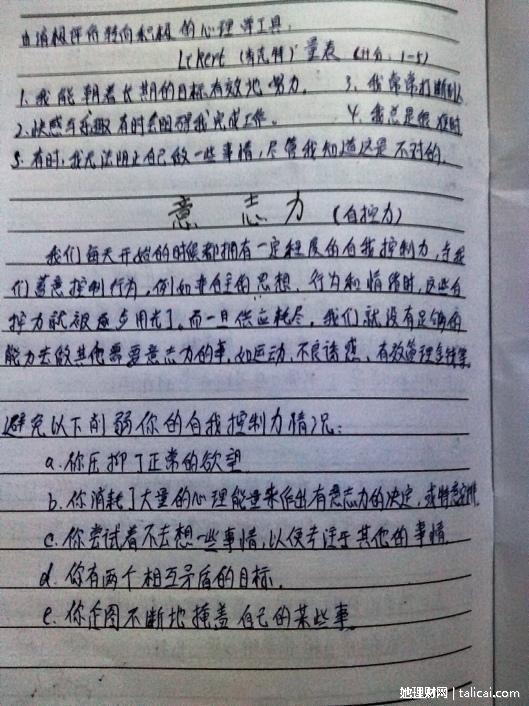 由消极评价转向积极的心理学工具:
Likert (李克特) 量表 (计分: 1-5)
1. 我能朝着长期的目标有效地努力. 3. 我常常打断别人
2. 快感与乐趣有时会阻碍我完成工作. 4. 我总是很准时
5. 有时, 我无法阻止自己做一些事情, 尽管我知道这是不对的.
意志力 (自控力)
我们每天开始的时候都拥有一定程度的自我控制力, 当我
们着意控制行为, 例如来自主的思想、行为和情绪时, 这些自
控力就被逐步用光了. 而一旦供应耗尽, 我们就没有足够的
能力去做其他需要意志力的事, 如运动、不良诱惑、有效管理金钱等.
避免以下削弱你的自我控制力情况:
a. 你压抑了正常的欲望
b. 你消耗了大量的心理能量来作出有意志力的决定,
c. 你尝试着不去想一些事情, 以便专注于其他的事情.
d. 你有两个相互矛盾的目标.
e. 你企图不断地掩盖自己的某些事
她理财网 | talicai.com